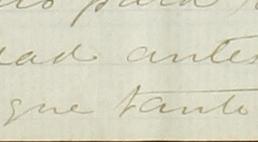 para
antes
que tanto